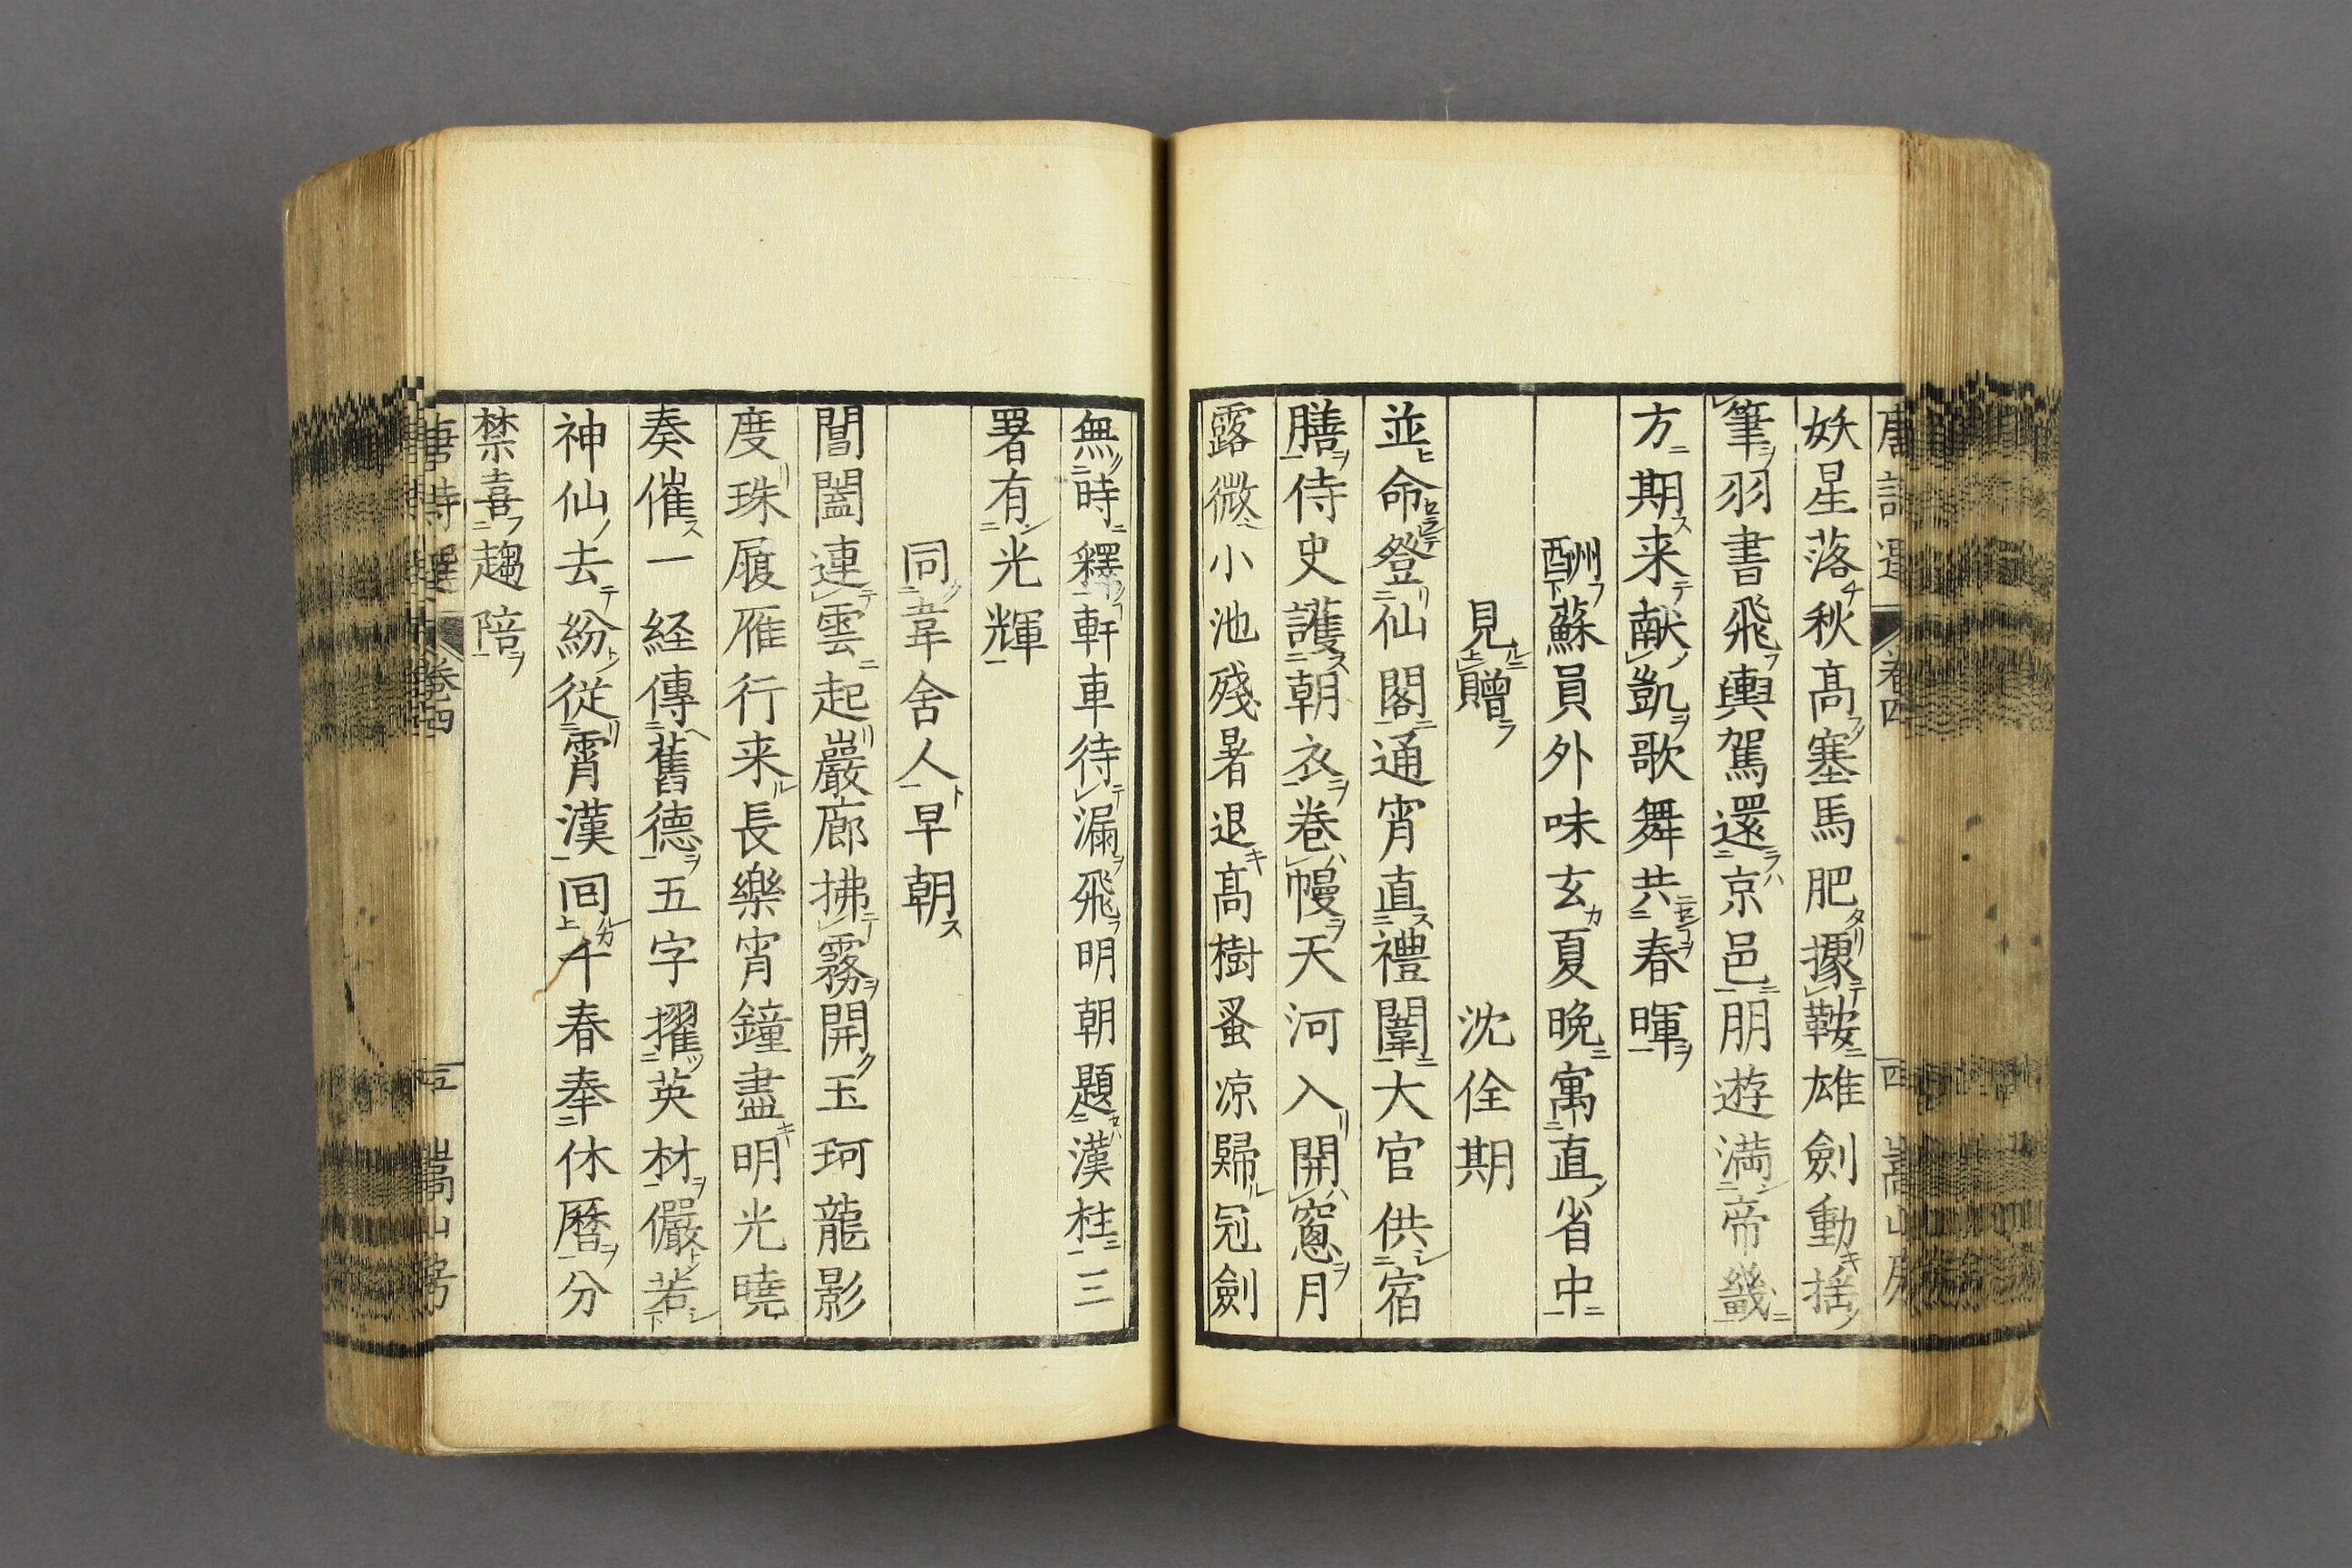 妖星落秋高塞馬肥據鞍雄劍動揺
筆羽書飛輿駕還京邑朋遊満帝畿
方期来献凱歌舞共春暉
酬蘇員外味玄夏晩寓直省中
見贈 沈佺期
並命登仙閣通宵直禮闈大官供宿
膳侍史護朝衣卷幔天河入開窓月
露微小池殘暑退高樹蚤凉歸冠劍
無時釋軒車待漏飛明朝題漢柱三
署有光輝
同韋舎人早朝
閶闔連雲起巖廊拂霧開玉珂龍影
度珠履雁行来長樂宵鐘盡明光曉
奏催一経傳舊德五字擢英材儼若
神仙去紛從霄漢回千春奉休曆分
禁喜趨陪
唐詩選 卷四 五 嵩山房